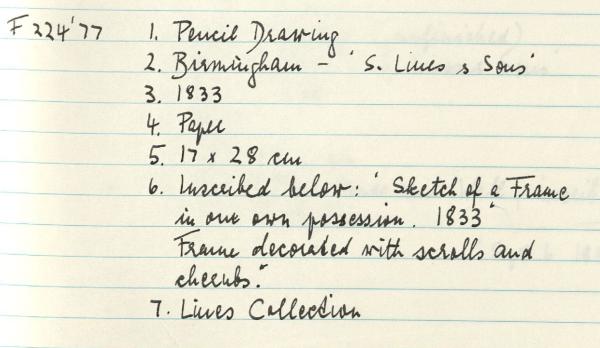 F224'77 1. Pencil Drawing
2. Birmingham - 'S. Lines & Sons'
3. 1833
4. Paper
5. 17 x 28 cm
6. Inscribed below: "Sketch of a Frame
in our own possession. 1833"
Frame decorated with scrolls and
cherubs."
7. Lines Collection